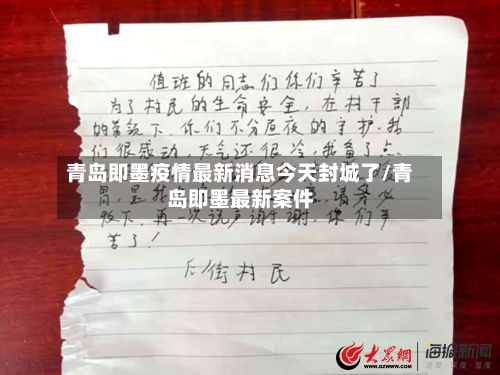 值班的同志们你们辛苦了
为了村民的生命安全，在村干部
的带领下，你们不分昼夜的守护，我
们很感动，天气还很冷，我
青岛即墨疫情最新消息今天封城了/青
岛即墨最新案件
请务必
收下，再一次说声谢谢，你们辛
苦了！
后街村民
大众网
www.dzwww.com
海报新闻
速度·深度·温度